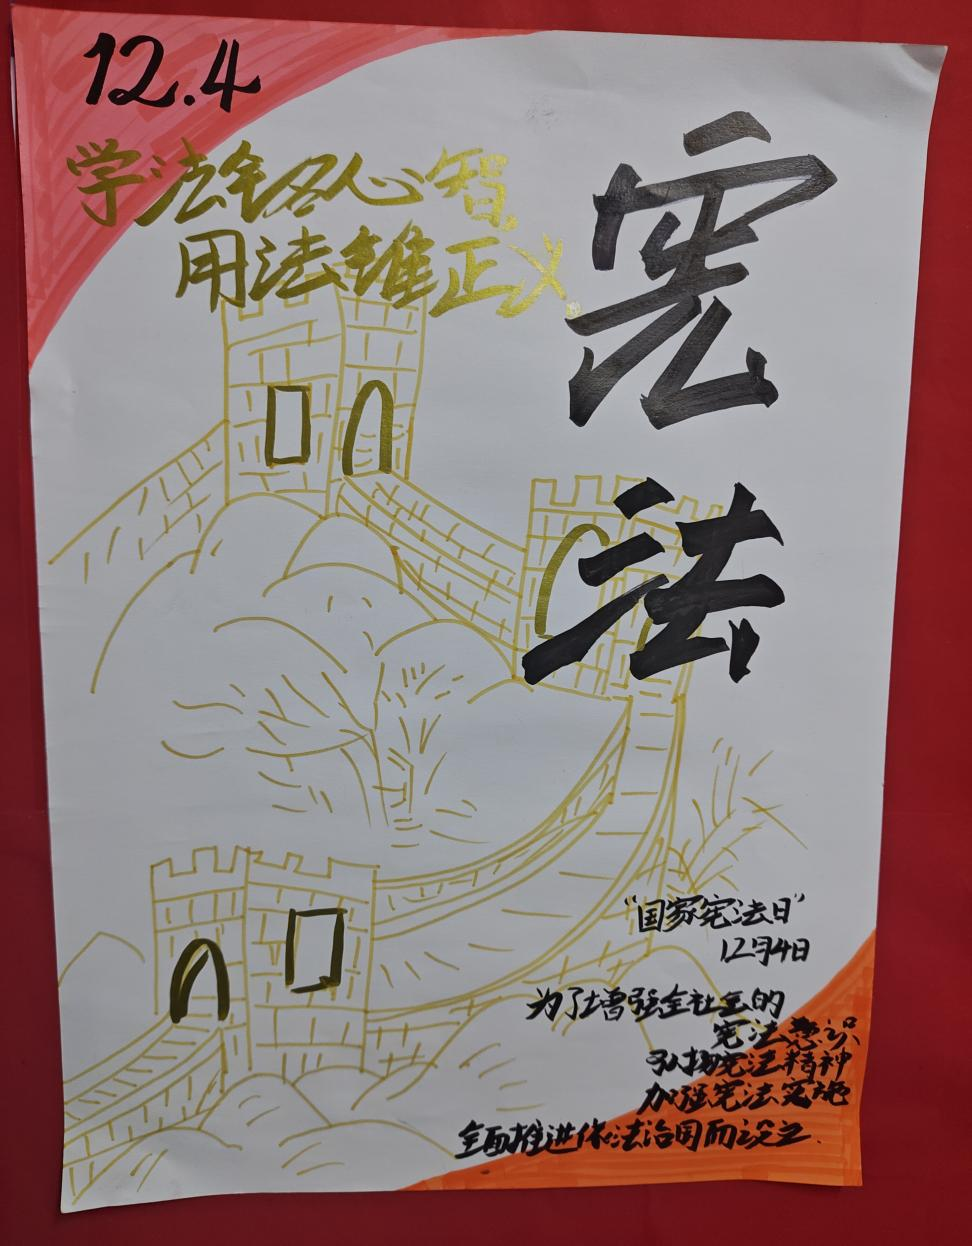 12.4
学法铭人心智
用法维正义
宪法
"国家宪法日"
12月4日
为了增强全社会的
宪法意识
弘扬宪法精神
加强宪法实施
全面推进依法治国而设立.